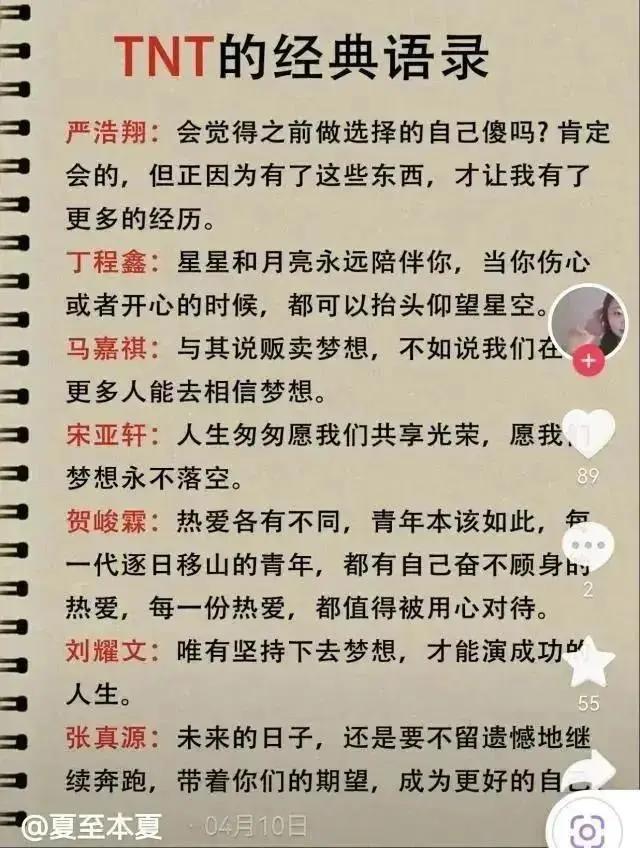 TNT的经典语录
严浩翔：会觉得之前做选择的自己傻吗？肯定
会的，但正因为有了这些东西，才让我有了
更多的经历。
丁程鑫：星星和月亮永远陪伴你，当你伤心
或者开心的时候，都可以抬头仰望星空。
马嘉祺：与其说贩卖梦想，不如说我们在
更多人能去相信梦想。
宋亚轩：人生匆匆愿我们共享光荣，愿我们
梦想永不落空。
贺峻霖：热爱各有不同，青年本该如此，每
一代逐日移山的青年，都有自己奋不顾身的
热爱，每一份热爱，都值得被用心对待。
刘耀文：唯有坚持下去梦想，才能演成功的
人生。
张真源：未来的日子，还是要不留遗憾地继
续奔跑，带着你们的期望，成为更好的自己
89
2
55
@夏至本夏 · 04月10日